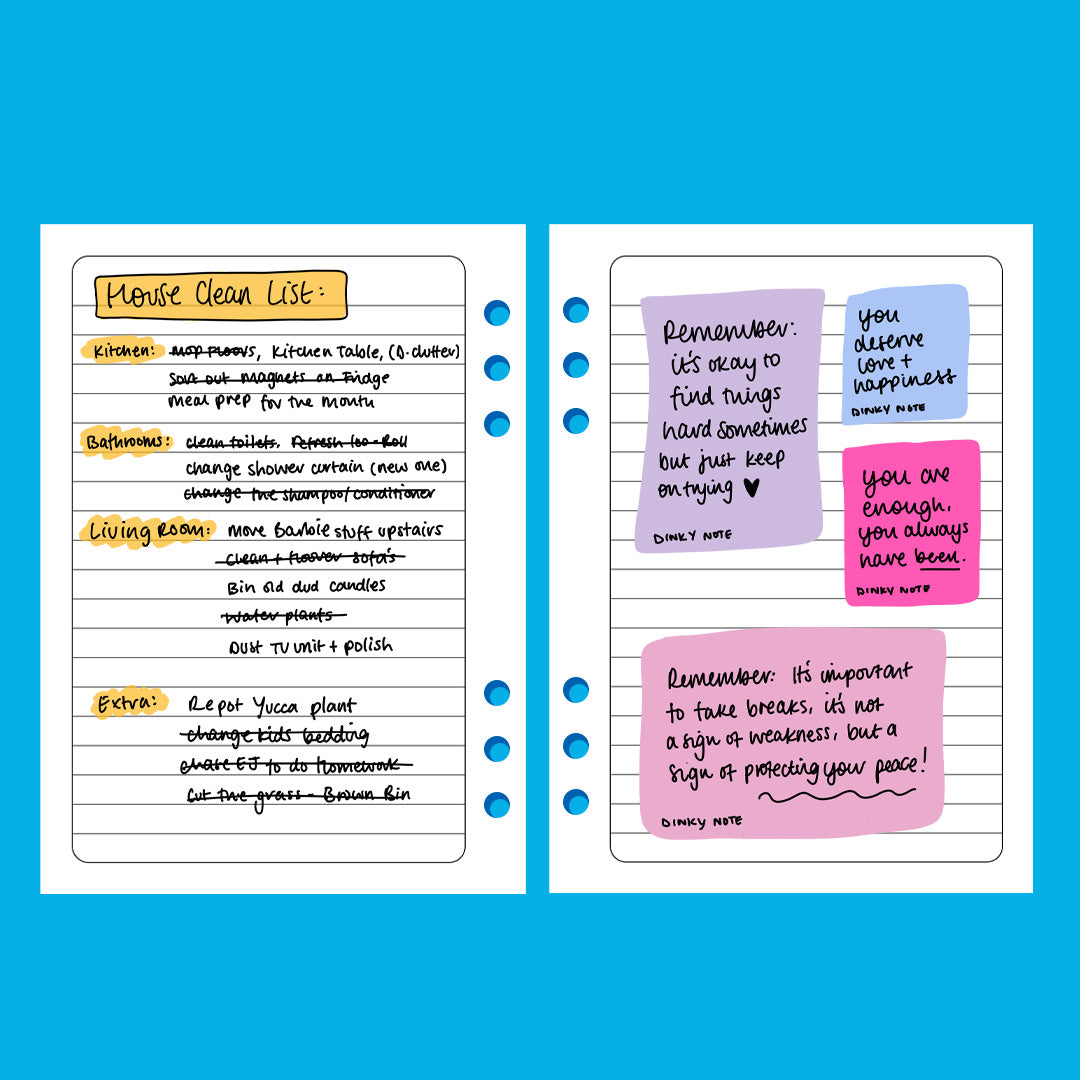 House Clean List:
Kitchen: Mop Floors, Kitchen Table, (D-clutter)
Sort out magnets on Fridge
meal prep for the month
Bathrooms: clean toilets, Refresh loo-Roll
change shower curtain (new one)
change the shampoo/conditioner
Living Room: move Barbie stuff upstairs
clean + hoover sofa's
Bin old dud candles
water plants
Dust TV unit + polish
Extra: Repot Yucca plant
change kids bedding
chase EJ to do homework
Cut the grass - Brown Bin
Remember:
it's okay to
find things
hard sometimes
but just keep
on trying ♥
DINKY NOTE
you
deserve
love +
happiness
DINKY NOTE
you are
enough,
you always
have been.
DINKY NOTE
Remember: It's important
to take breaks, it's not
a sign of weakness, but a
sign of protecting your peace!
DINKY NOTE